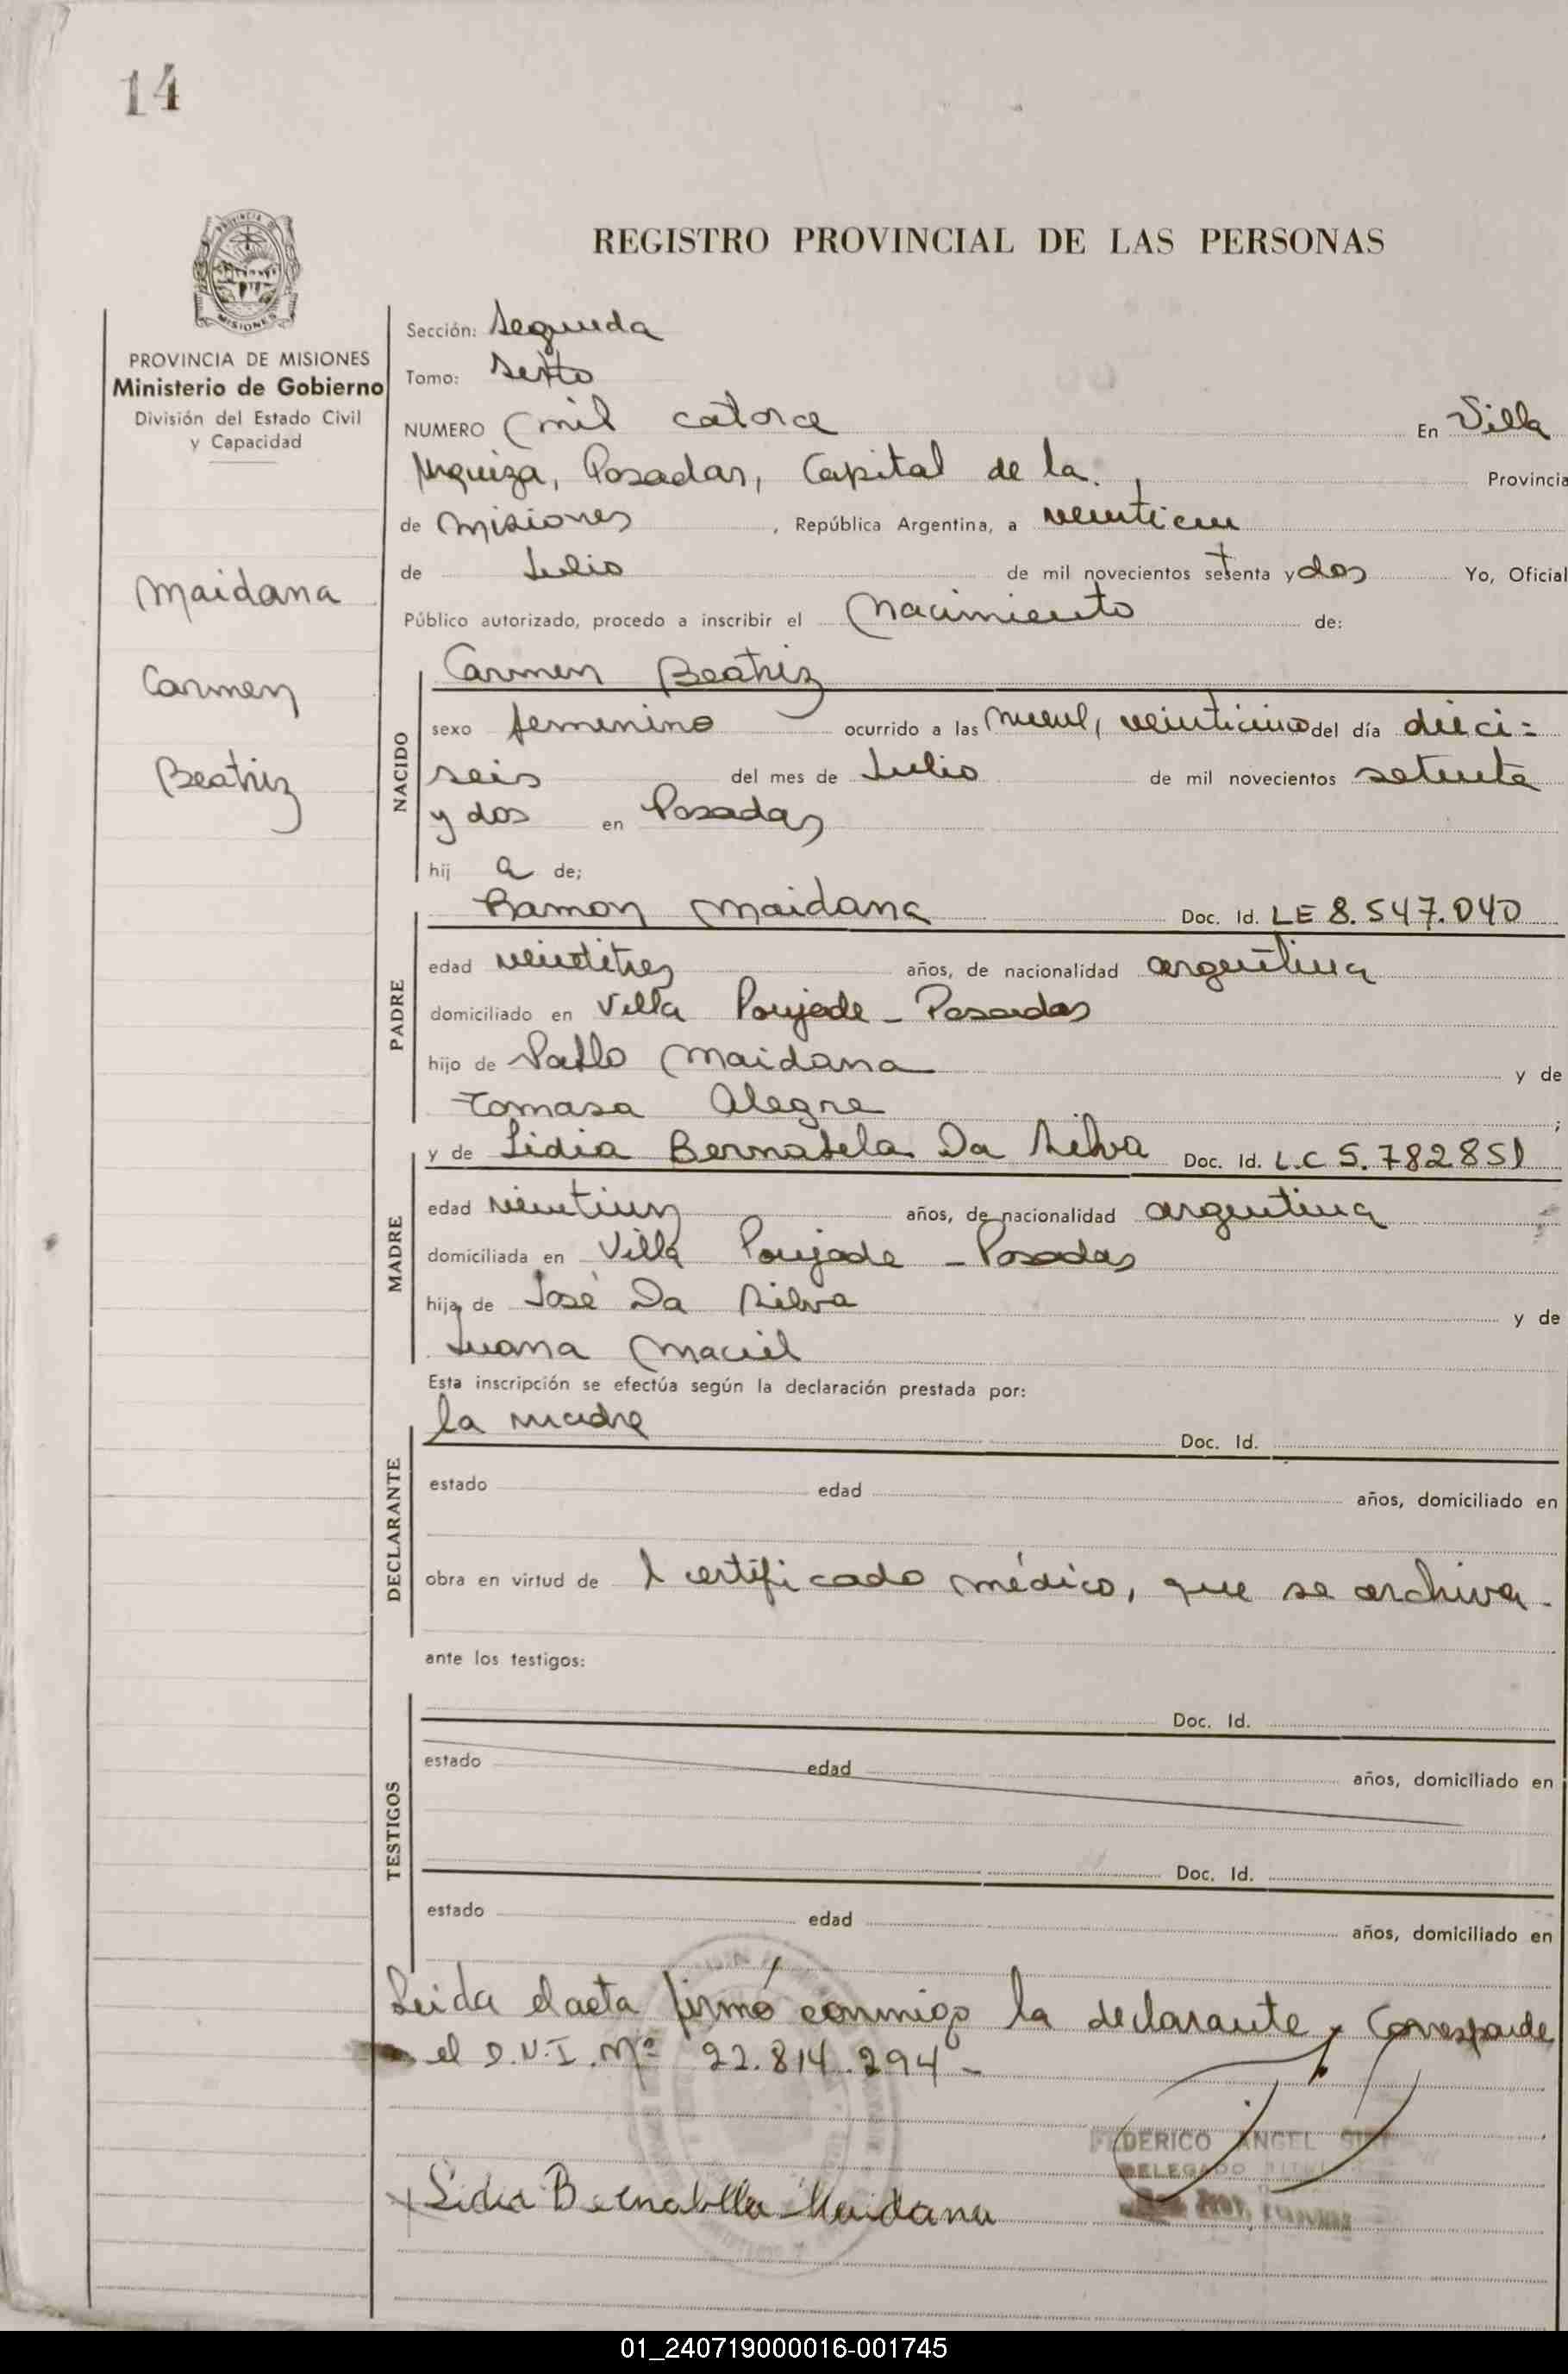 14
REGISTRO PROVINCIAL DE LAS PERSONAS
MISIONES
PROVINCIA DE MISIONES
Ministerio de Gobierno
División del Estado Civil
y Capacidad
Maidana
Carmen
Beatriz
Sección: Segunda
Tomo: Sexto
NUMERO mil catorce En Villa
Urquiza, Posadas, Capital de la Provincia
de Misiones, República Argentina, a veintiun
de Julio de mil novecientos setenta y dos Yo, Oficial
Público autorizado, procedo a inscribir el Nacimiento de:
NACIDO
Carmen Beatriz
sexo femenino ocurrido a las nueve, veinticinco del día dieci=
seis del mes de Julio de mil novecientos setenta
y dos en Posadas
hij a de;
PADRE
Ramon Maidana Doc. Id. LE 8.547.040
edad veintitres años, de nacionalidad argentina
domiciliado en Villa Poujade - Posadas
hijo de Pablo Maidana y de
Tomasa Alegre ;
MADRE
y de Lidia Bernabela Da Silva Doc. Id. L.C 5.782851
edad veintiun años, de nacionalidad argentina
domiciliada en Villa Poujade - Posadas
hija de José Da Silva y de
Juana Maciel
Esta inscripción se efectúa según la declaración prestada por:
DECLARANTE
la madre Doc. Id.
estado edad años, domiciliado en
obra en virtud de l certificado médico, que se archiva.
ante los testigos:
TESTIGOS
Doc. Id.
estado edad años, domiciliado en
Doc. Id.
estado edad años, domiciliado en
Leida el acta firmó conmigo la declarante, Corresponde
el D.N.I. Nº 22.814.294-
FEDERICO ANGEL
DELEGADO TITULAR
Lidia Bernabella Maidana
01_240719000016-001745